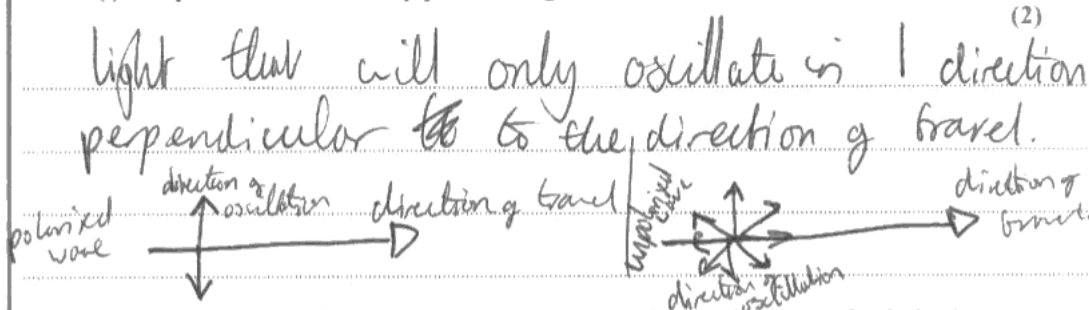 (2)
light that will only oscillate in 1 direction
perpendicular to to the direction of travel.
polarised wave
direction of oscillation
direction of travel
unpolarised wave
direction of travel
direction of oscillation